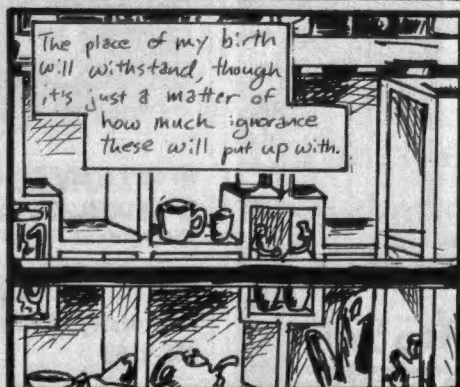 The place of my birth
will withstand, though
it's just a matter of
how much ignorance
these will put up with.